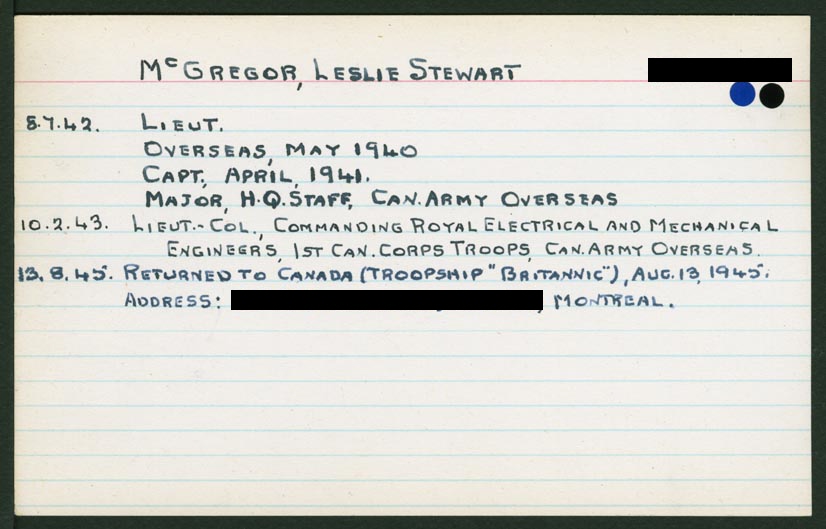 McGREGOR, LESLIE STEWART
8.7.42. LIEUT.
OVERSEAS, MAY 1940
CAPT., APRIL, 1941.
MAJOR, H.Q. STAFF, CAN. ARMY OVERSEAS
10.2.43. LIEUT.-COL., COMMANDING ROYAL ELECTRICAL AND MECHANICAL
ENGINEERS, 1ST CAN. CORPS TROOPS, CAN. ARMY OVERSEAS.
13.8.45. RETURNED TO CANADA (TROOPSHIP "BRITANNIC"), AUG. 13, 1945.
ADDRESS: , MONTREAL.